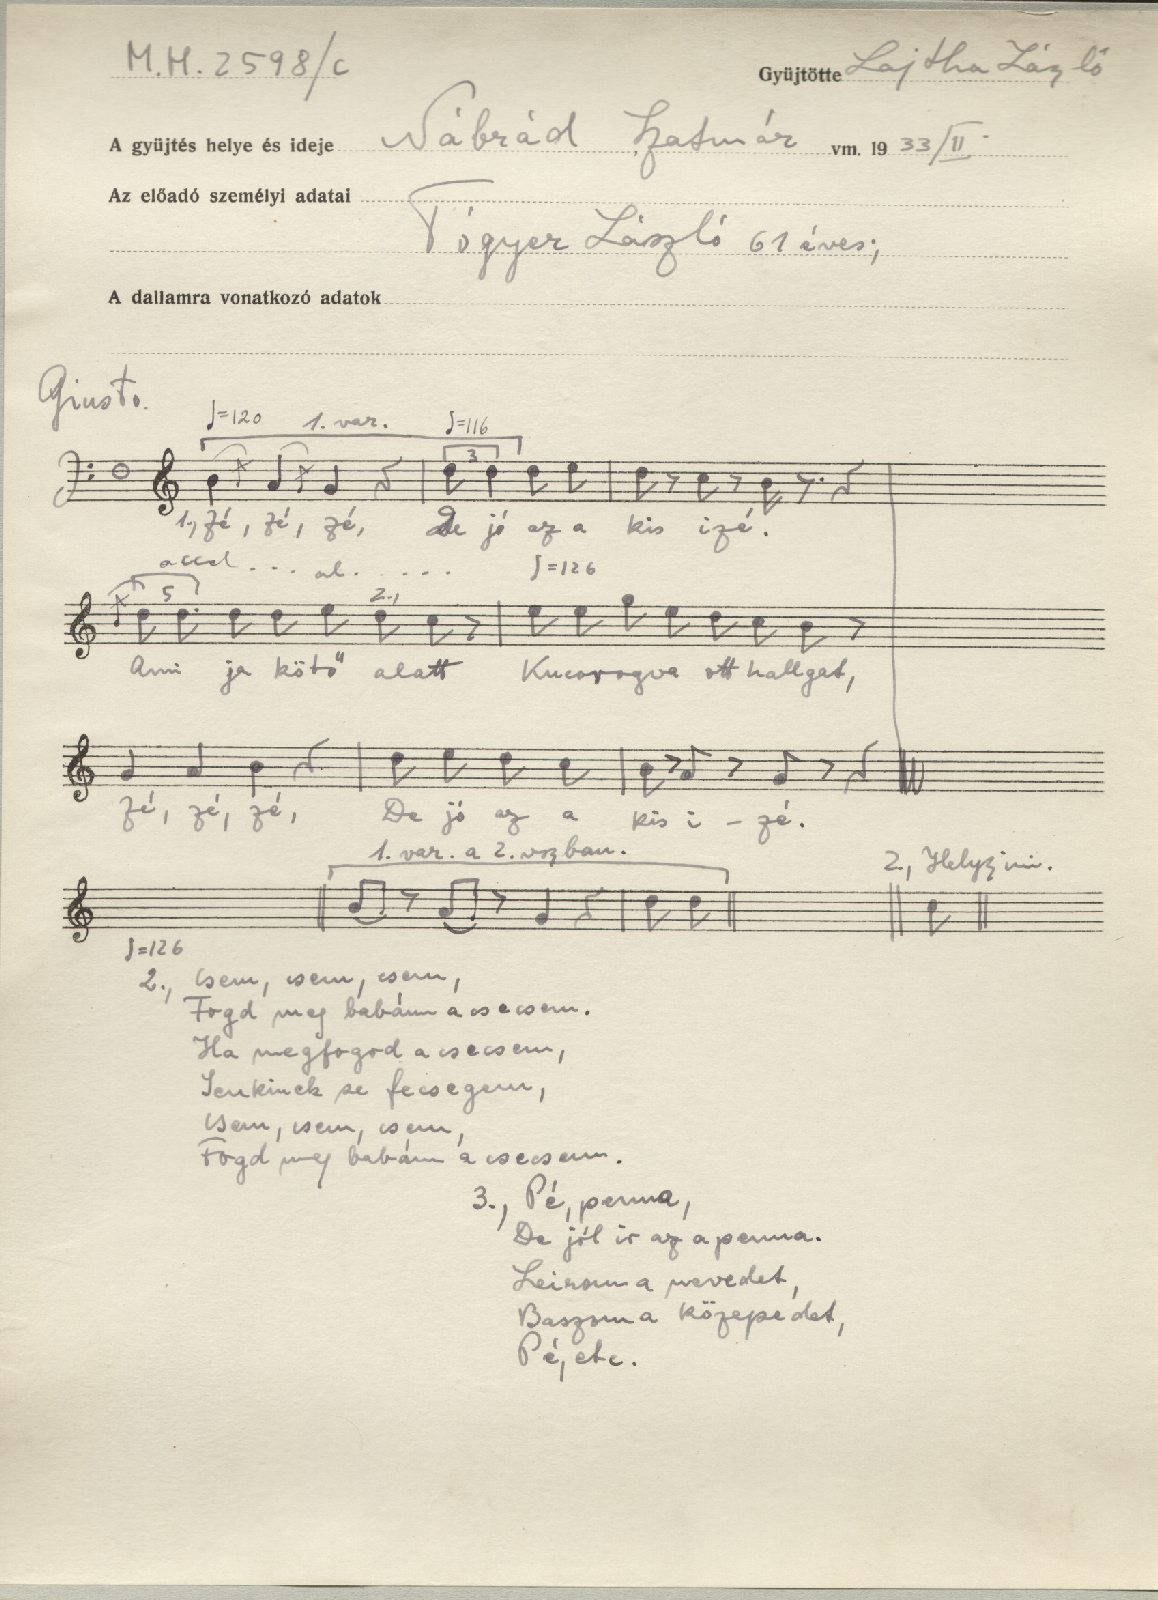 M.H. 2598/c
Gyüjtötte Lajtha László
A gyüjtés helye és ideje Nábrád, Szatmár vm. 1933/II.
Az előadó személyi adatai
Tógyer László 61 éves;
A dallamra vonatkozó adatok
Giusto.
♩=120 1. var. ♩=116
3
1., Zé, zé, zé, De jó az a kis izé.
accel . . . al . . . . . ♩=126
5 2.,
Ami ja kötő alatt Kucorogva ott hallgat,
Zé, zé, zé, De jó az a kis i - zé.
1. var. a 2. vszban. 2., Helyz. ini.
♩=126
2., Csem, csem, csem,
Fogd meg babám a csecsem.
Ha megfogod a csecsem,
Senkinek se fecsegem,
Csem, csem, csem,
Fogd meg babám a csecsem.
3., Pé, penna,
De jól ir az a penna.
Leirom a nevedet,
Baszom a közepedet,
Pé, etc.